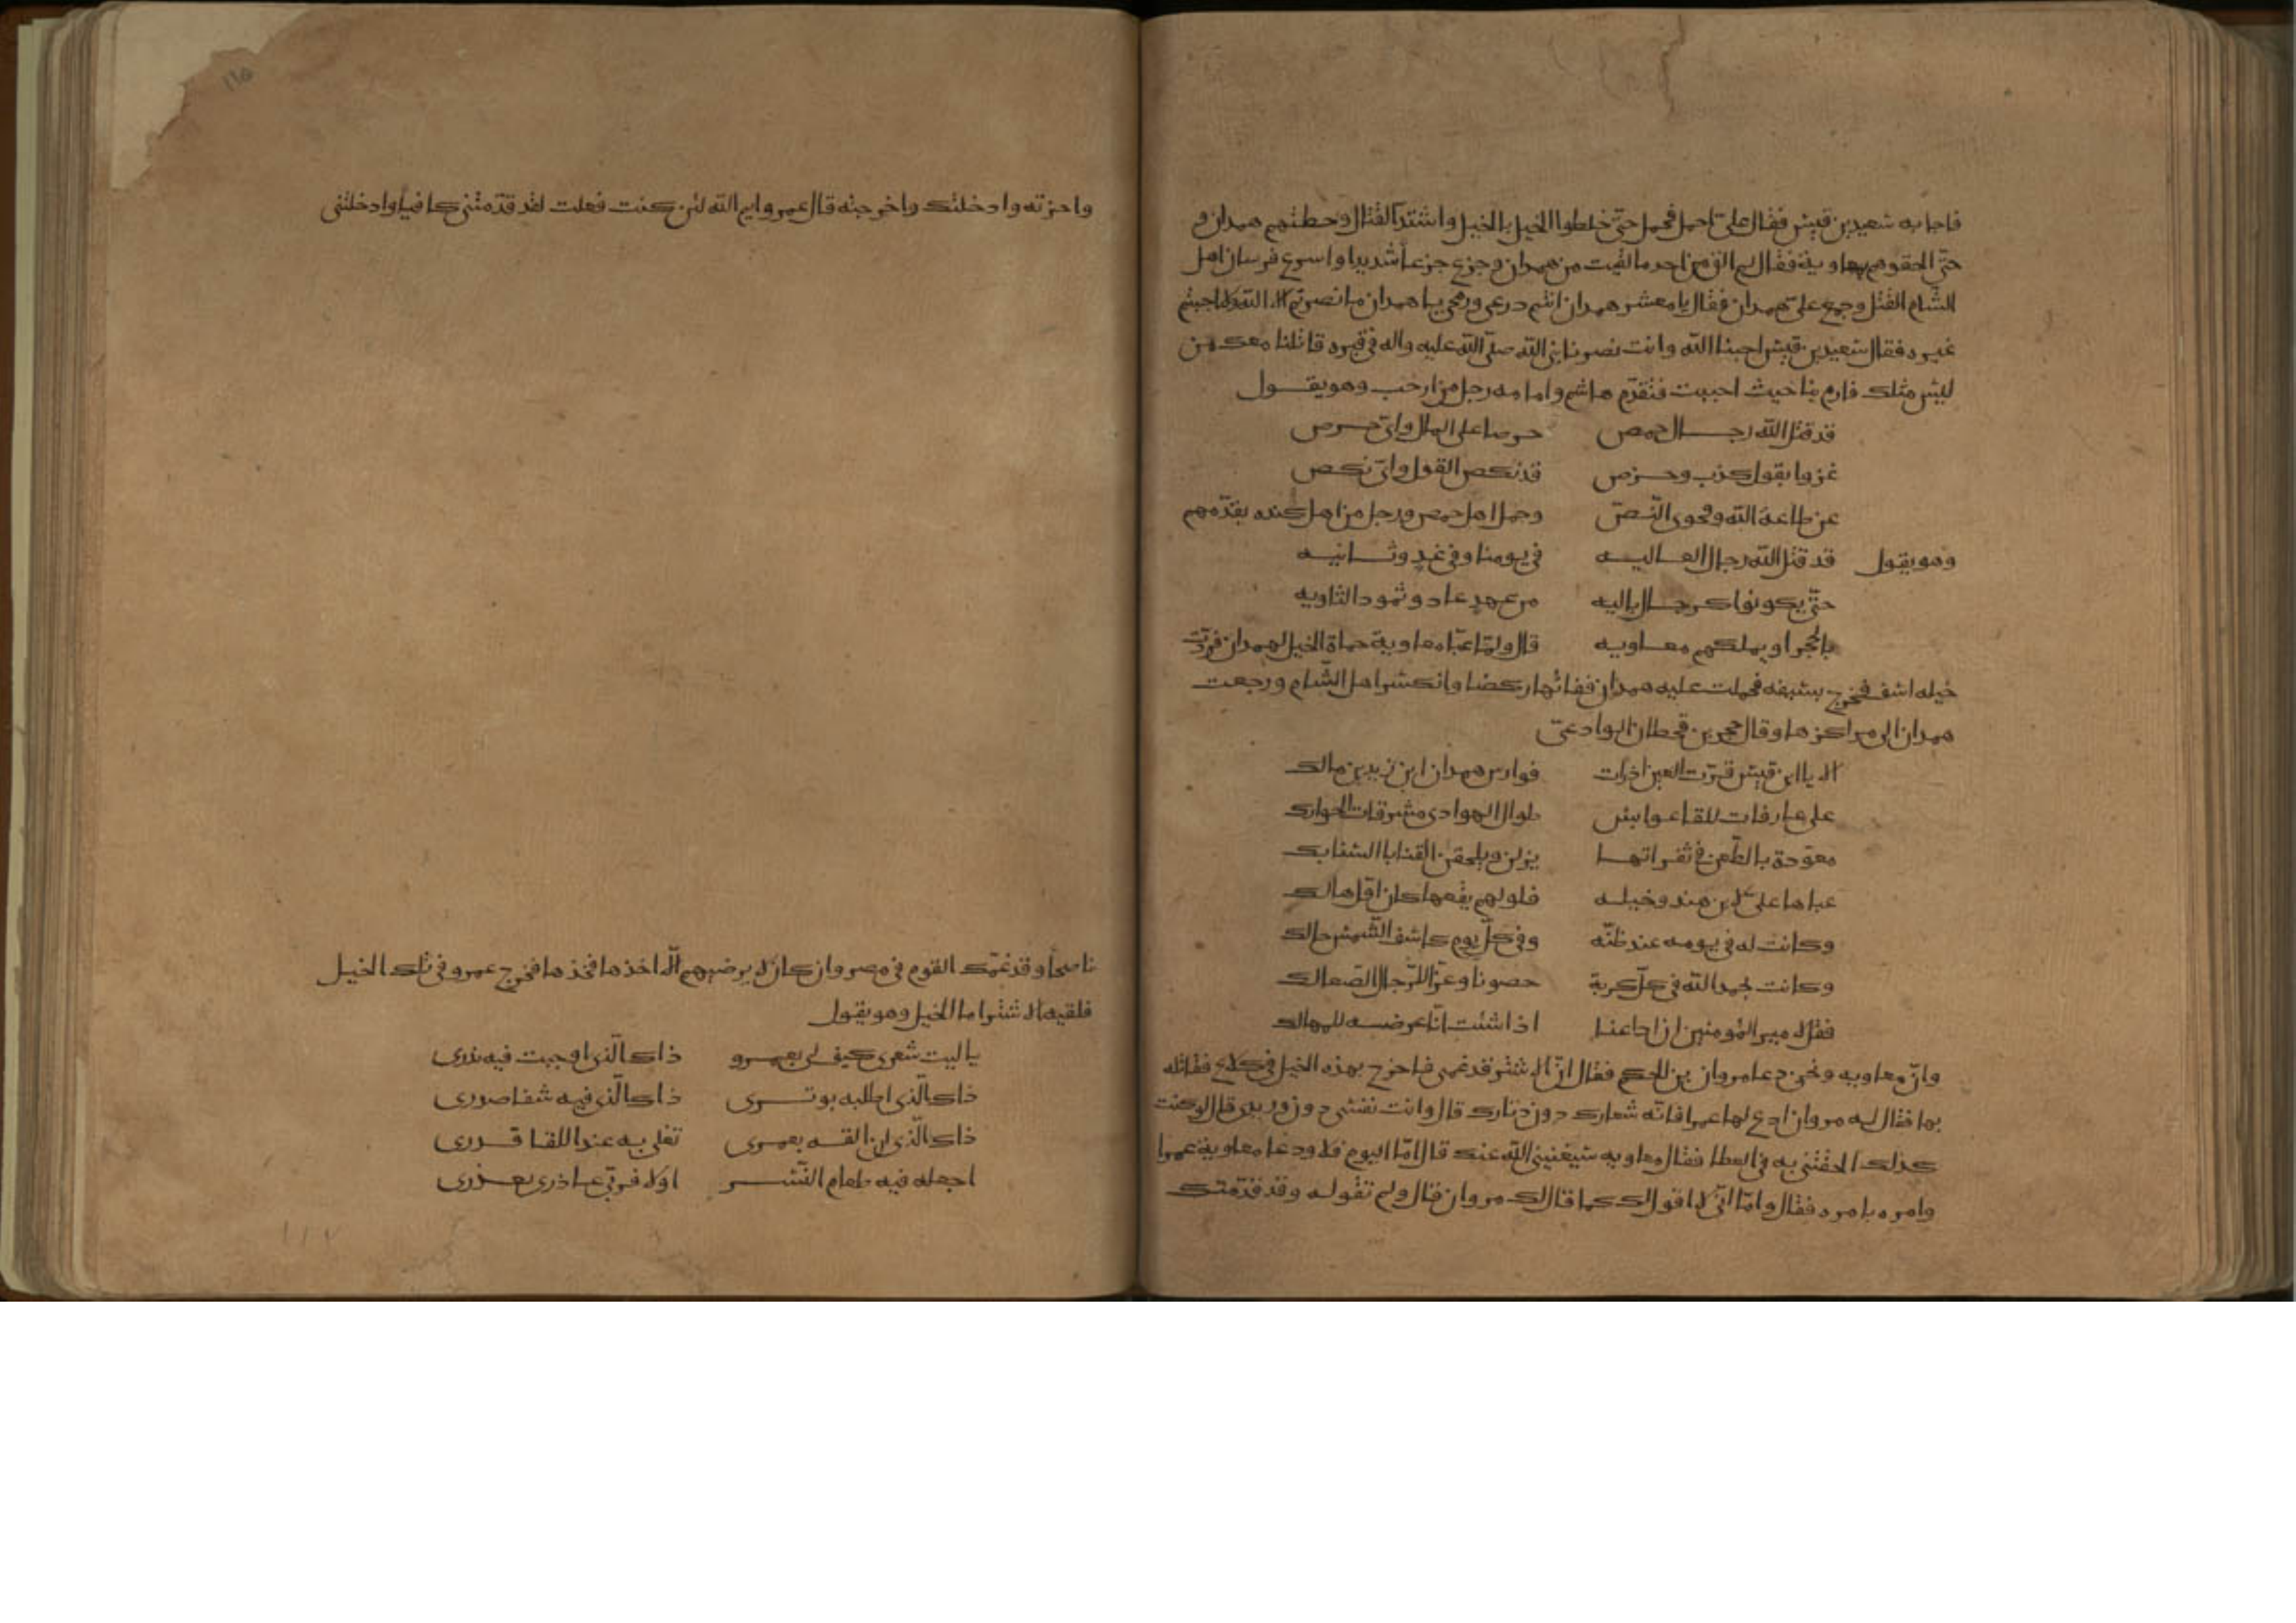 فاجابه سعيد بن قيس فقال علىّ احمل فحمل حتّى خلطوا الخيل بالخيل واشتدّ القتال وحطتهم همدان و
حتّى الحقوهم بمعاوية فقال لم الق من احد ما لقيت من همدان وجزع جزعا شديدا واسرع فرسان اهل
الشام القتل وجمع علىّ همدان فقال يا معشر همدان انتم درعى ورمحى يا همدان ما نصرتم الا الله ولا اجبتم
غيره فقال سعيد بن قيس اجبنا الله وانت نصرنا نبىّ الله صلّى الله عليه واله فى قبره قاتلنا معك من
ليس مثلك فارم بنا حيث احببت فتقدّم هاشم وامامه رجل من ارحب وهو يقـــول
قد قتل الله رجـــال حمص حرصا على المال واىّ حـرص
غزوا بقول كذب وخـــرص قد نكص القول واىّ نكص
عن طاعة الله وفحوى النّـصّ وحمل اهل حمص ورجل من اهل كنده يقدّمهم
وهو يقول قد قتل الله رجال العـــاليـــه فى يومنا وفى غدٍ وثـــانيـــه
حتّى يكونوا كرجـــال باليه من عهد عاد وثمود الثاويه
بالحجر او يملكهم معـــاويه قال ولمّا عبّا معاوية حماة الخيل لهمدان فردّت
خيله اسف فخرج بسيفه فحملت عليه همدان ففاتها ركضا وانكسر اهل الشّام ورجعت
همدان الى مراكزها وقال حجر بن قحطان الوادعىّ
الا يا ابن قيس قرّت العين اذ رات فوارس همدان ابن زيد بن مالك
على عارفات للقا عوابس طوال الهوادى مشرفات الحوارك
معوّدة بالطّعن فى ثغراتهـــا يزلن ويلحقن القنا بالسنابك
عباها علىّ لابن هند وخيلـــه فلو لم يفتها كان اوّل هالك
وكانت له فى يومه عند ظنّه وفى كلّ يوم كاسف الشّمس حالك
وكانت بحمد الله فى كلّ كربة حصونا وعزّا للرّجال الصّعالك
فقل لامير المؤمنين ان ادعنـــا اذا شئت انّا عرضـــه للمهالك
وانّ معاويه دعا مروان بن الحكم فقال انّ الاشتر قد غمنى فاخرج بهذه الخيل فى كلاع فقاتله
بها فقال له مروان ادع لها عمرا فانّه شعارك دون دثارك قال وانت نفسى دون وريدى قال لو كنت
كذلك الحقتنى به فى العطا فقال معاويه سيغنينى الله عنك قال امّا اليوم فلا ودعا معاوية عمرا
وامره بامره فقال واما انّى لا اقول لك كما قال لك مروان قال ولم تقوله وقد قدّمتك
واخرته وادخلتك واخرجته قال عمرو وايم الله لئن كنت فعلت لقد قدّمتنى كافيا وادخلتنى
ناصحا وقد غمّك القوم فى مصر وان كان لا يرضيهم الّا اخذها فخذها فخرج عمرو فى تلك الخيـل
فلقيه الاشتر امام الخيل وهو يقول
يا ليت شعرى كيف لى بعمـــرو ذاك الّذى اوجبت فيه نذرى
ذاك الّذى اطلبه بوتـــرى ذاك الّذى فيه شفا صدرى
ذاك الّذى ان القـــه بعمرى تغلى به عند اللقا قـــدرى
اجعله فيه طعام النّســـر اولا فربّى عـــاذرى بعـــذرى